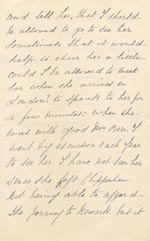 and tell her, that I should
be allowed to go to see her
sometimes, that it would
help to cheer her a little
could I be allowed to meet
her when she arrived in
London? to speak to her for
a few minutes: when she
was with good Mrs
I
went by excursion each year
to see her. I have not seen her
since she left Chippenham
Not being able to afford
the journey to Newark but it